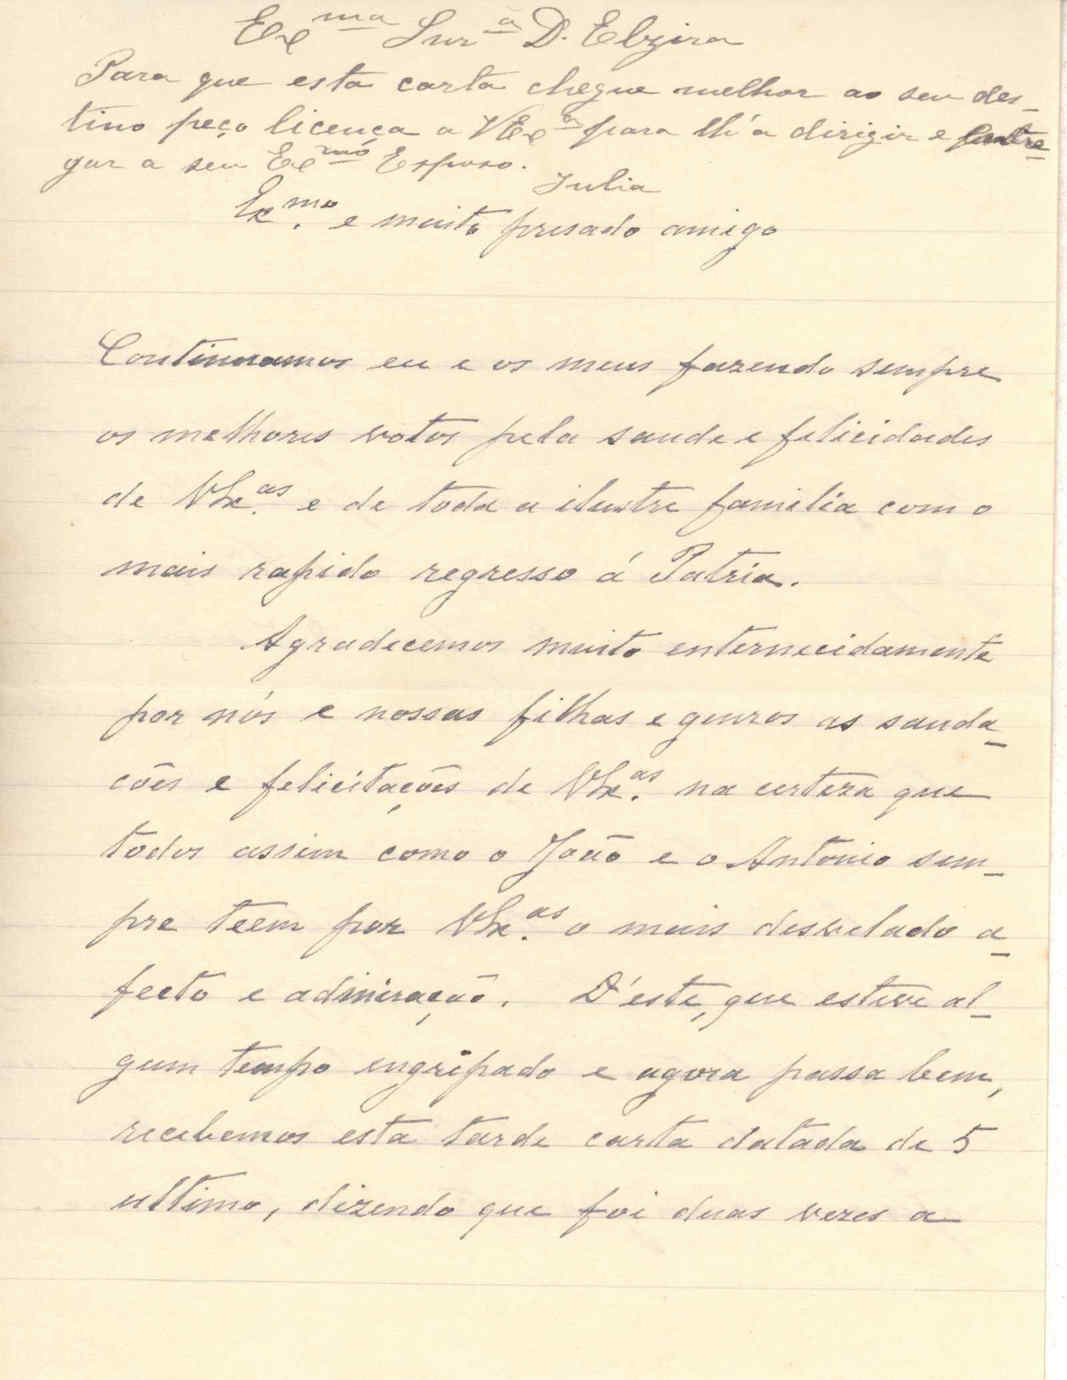 Exma Snrª D. Elzira
Para que esta carta chegue melhor ao seu des-
tino peço licença a VExª para lh'a dirigir e entre-
gar a seu Exmo Esposo.
Julia
Exmo. e muito presado amigo
Continuamos eu e os meus fazendo sempre
os melhores votos pela saude e felicidades
de VExas. e de toda a ilustre familia com o
mais rapido regresso á Patria.
Agradecemos muito enternecidamente
por nós e nossas filhas e genros as sauda-
cões e felicitações de VExas. na certeza que
todos assim como o João e o Antonio sem-
pre teem por VExas. o mais desvelado a-
fecto e admiração. D'este, que esteve al-
gum tempo engripado e agora passa bem,
recebemos esta tarde carta datada de 5
ultimo, dizendo que foi duas vezes a